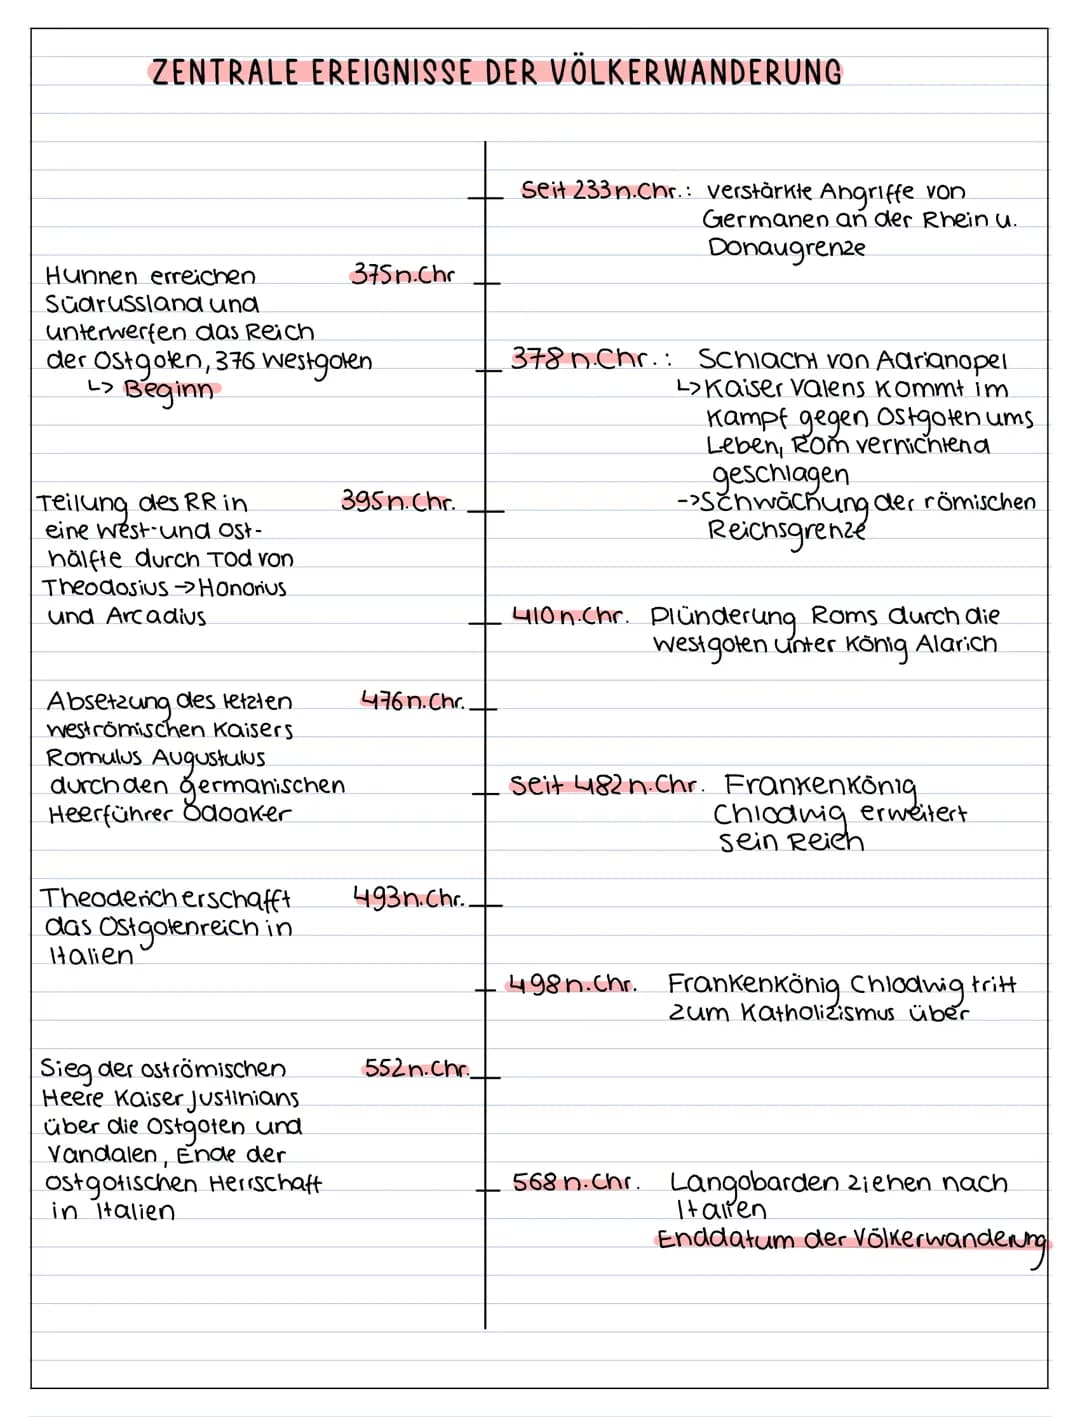 ZENTRALE EREIGNISSE DER VÖLKERWANDERUNG
Seit 233 n.Chr.: verstärkte Angriffe von
Germanen an der Rhein u.
Donaugrenze
Hunnen erreichen 375 n.Chr
Südrussland und
unterwerfen das Reich
der Ostgoten, 376 Westgoten
↳ Beginn
378 n.Chr.: Schlacht von Adrianopel
↳ Kaiser Valens kommt im
Kampf gegen Ostgoten ums
Leben, Rom vernichtend
geschlagen
-> Schwächung der römischen
Reichsgrenze
Teilung des RR in 395 n.Chr.
eine West- und Ost-
hälfte durch Tod von
Theodosius → Honorius
und Arcadius
410 n.Chr. Plünderung Roms durch die
Westgoten unter König Alarich
Absetzung des letzten 476 n.Chr.
weströmischen Kaisers
Romulus Augustulus
durch den germanischen
Heerführer Odoaker
Seit 482 n.Chr. Frankenkönig
Chlodwig erweitert
sein Reich
Theoderich erschafft 493 n.Chr.
das Ostgotenreich in
Italien
498 n.Chr. Frankenkönig Chlodwig tritt
zum Katholizismus über
Sieg der oströmischen 552 n.Chr.
Heere Kaiser Justinians
über die Ostgoten und
Vandalen, Ende der
ostgotischen Herrschaft
in Italien
568 n.Chr. Langobarden ziehen nach
Italien
Enddatum der Völkerwanderung